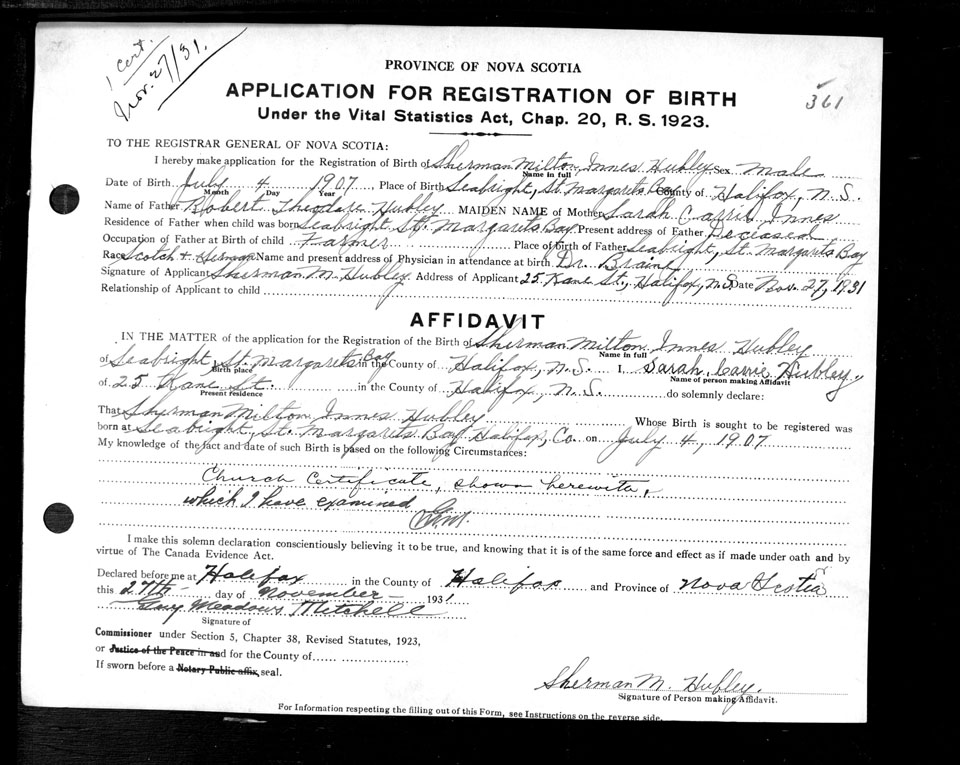 1 Cert.
Nov. 27/31.
361
PROVINCE OF NOVA SCOTIA
APPLICATION FOR REGISTRATION OF BIRTH
Under the Vital Statistics Act, Chap. 20, R. S. 1923.
TO THE REGISTRAR GENERAL OF NOVA SCOTIA:
I hereby make application for the Registration of Birth of Sherman Milton Innes Hubley Sex Male
Name in full
Date of Birth July 4 1907, Place of Birth Seabright, St. Margarets Bay County of Halifax, N.S.
Month Day Year
Name of Father Robert Theodore Hubley MAIDEN NAME of Mother Sarah Carrie Innes
Residence of Father when child was born Seabright St. Margarets Bay Present address of Father Deceased
Occupation of Father at Birth of child Farmer Place of birth of Father Seabright, St. Margarets Bay
Race Scotch & German Name and present address of Physician in attendance at birth Dr. Braine
Signature of Applicant Sherman M. Hubley Address of Applicant 25 Kane St, Halifax, N.S. Date Nov. 27, 1931
Relationship of Applicant to child
AFFIDAVIT
IN THE MATTER of the application for the Registration of the Birth of Sherman Milton Innes Hubley
Name in full
of Seabright, St. Margarets Bay in the County of Halifax, N.S. I, Sarah Carrie Hubley,
Birth place Name of person making Affidavit
of 25 Kane St. in the County of Halifax, N.S. do solemnly declare:
Present residence
That Sherman Milton Innes Hubley Whose Birth is sought to be registered was
born at Seabright, St. Margarets Bay Halifax, Co. on July 4, 1907
My knowledge of the fact and date of such Birth is based on the following Circumstances:
Church Certificate, shown herewith,
which I have examined
I make this solemn declaration conscientiously believing it to be true, and knowing that it is of the same force and effect as if made under oath and by
virtue of The Canada Evidence Act.
Declared before me at Halifax in the County of Halifax and Province of Nova Scotia
this 27th day of November 1931
Meadows Mitchell
Signature of
Commissioner under Section 5, Chapter 38, Revised Statutes, 1923,
or Justice of the Peace in and for the County of
If sworn before a Notary Public affix seal.
Sherman M. Hubley.
Signature of Person making Affidavit.
For Information respecting the filling out of this Form, see Instructions on the reverse side.